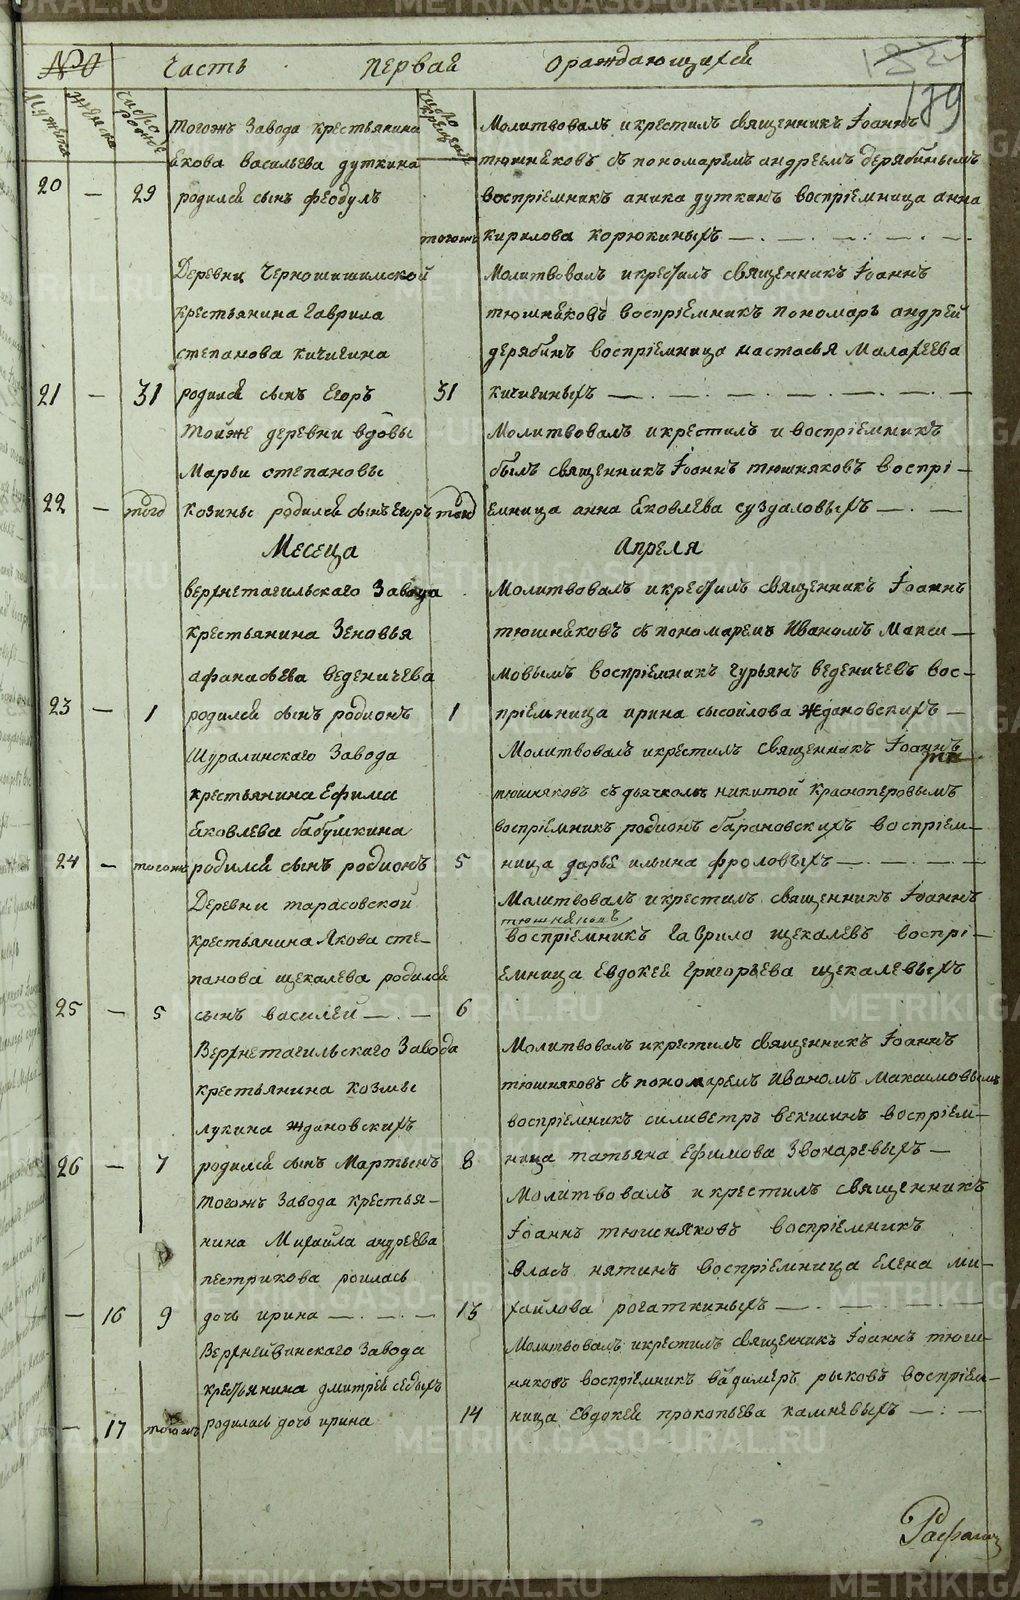 № Часть первая о раждающихся 182 179
Мужска Женска число рожде число крещен
тогожъ завода крестьянина молитвовалъ и крестилъ священникъ Іоаннъ
Якова васильева дуткина тюшняковъ съ пономаремъ андреемъ дерябинымъ
20 — 29 родился сынъ феодулъ воспріемникъ аника дуткинъ воспріемница анна
тогожъ кирилова корюкиныхъ
Деревни Черношишимской Молитвовалъ и крестилъ священникъ Іоаннъ
крестьянина гаврила тюшняковъ воспріемникъ пономарь андрей
степанова кичигина дерябинъ воспріемница настасья Малахеева
21 — 31 родился сынъ Егоръ 31 кичигиныхъ
тойже деревни вдовы Молитвовалъ и крестилъ и воспріемникъ
Марьи степановы былъ священникъ Іоаннъ тюшняковъ воспрі-
22 — того козины родился сынъ Егоръ того емница анна Яковлева суздаловыхъ
Месеца Апреля
верхнетагильскаго Завода Молитвовалъ и крестилъ священникъ Іоаннъ
крестьянина Зеновья тюшняковъ съ пономаремъ Иваномъ Макси-
афанасьева веденичева мовымъ воспріемникъ гурьянъ веденичевъ вос-
23 — 1 родился сынъ родионъ 1 пріемница ирина сысоилова ждановскихъ
Шуралинскаго Завода Молитвовалъ и крестилъ священникъ Іоаннъ
крестьянина Ефима тюшняковъ съ дьячкомъ никитой Красноперовымъ
Яковлева бабушкина воспріемникъ родионъ барановскихъ воспріем-
24 — тогожъ родился сынъ родионъ 5 ница дарья ильина фроловыхъ
Деревни тарасовской Молитвовалъ и крестилъ священникъ Іоаннъ
тюшняковъ
крестьянина Якова сте- воспріемникъ гаврило щекалевъ воспрі-
панова щекалева родился емница Евдокея Григорьева щекалевыхъ
25 — 5 сынъ василей 6
Верхнетагильскаго Завода Молитвовалъ и крестилъ священникъ Іоаннъ
крестьянина козмы тюшняковъ съ пономаремъ Иваномъ Максимовымъ
лукина ждановскихъ воспріемникъ силиветръ векшинъ воспріем-
26 — 7 родился сынъ Мартынъ 8 ница татьяна Ефимова Звонаревыхъ
тогожъ Завода крестья- Молитвовалъ и крестилъ священникъ
нина Михайла андреева Іоаннъ тюшняковъ воспріемникъ
пестрикова роилась власъ нятинъ воспріемница Елена ми-
— 16 9 дочь ирина 13 хайлова рогаткиныхъ
Верхнейвинскаго Завода Молитвовалъ и крестилъ священникъ Іоаннъ тюш-
крестьянина дмитрея седыхъ няковъ воспріемникъ вадимеръ рыковъ воспріем-
— 17 тогожъ родилась дочь ирина 14 ница Евдокея прокопьева камневыхъ
METRIKI.GASO-URAL.RU